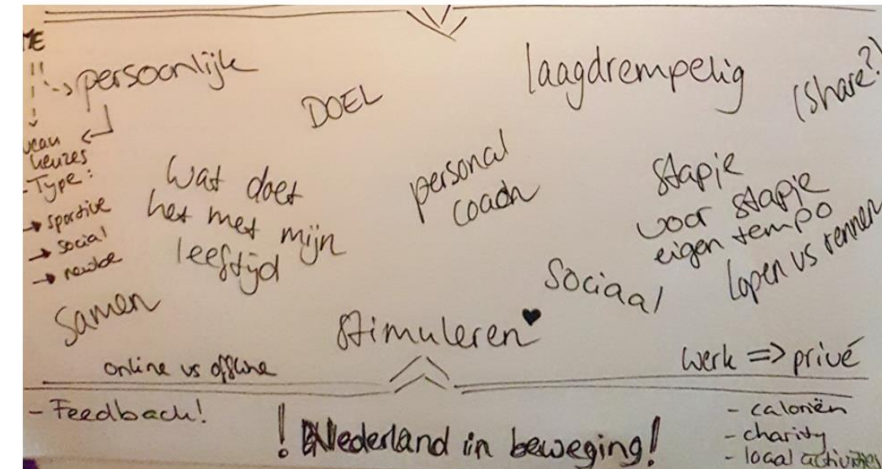 persoonlijk
DOEL
laagdrempelig
(Share?)
keuzes
- Type:
→ sportive
→ social
→ newbe
Wat doet
het met mijn
leeftijd
personal
coach
stapje
voor stapje
eigen tempo
lopen vs rennen
Samen
Sociaal
Stimuleren♥
online vs offline
werk => privé
- Feedback!
! Nederland in beweging!
- caloriën
- charity
- local activities